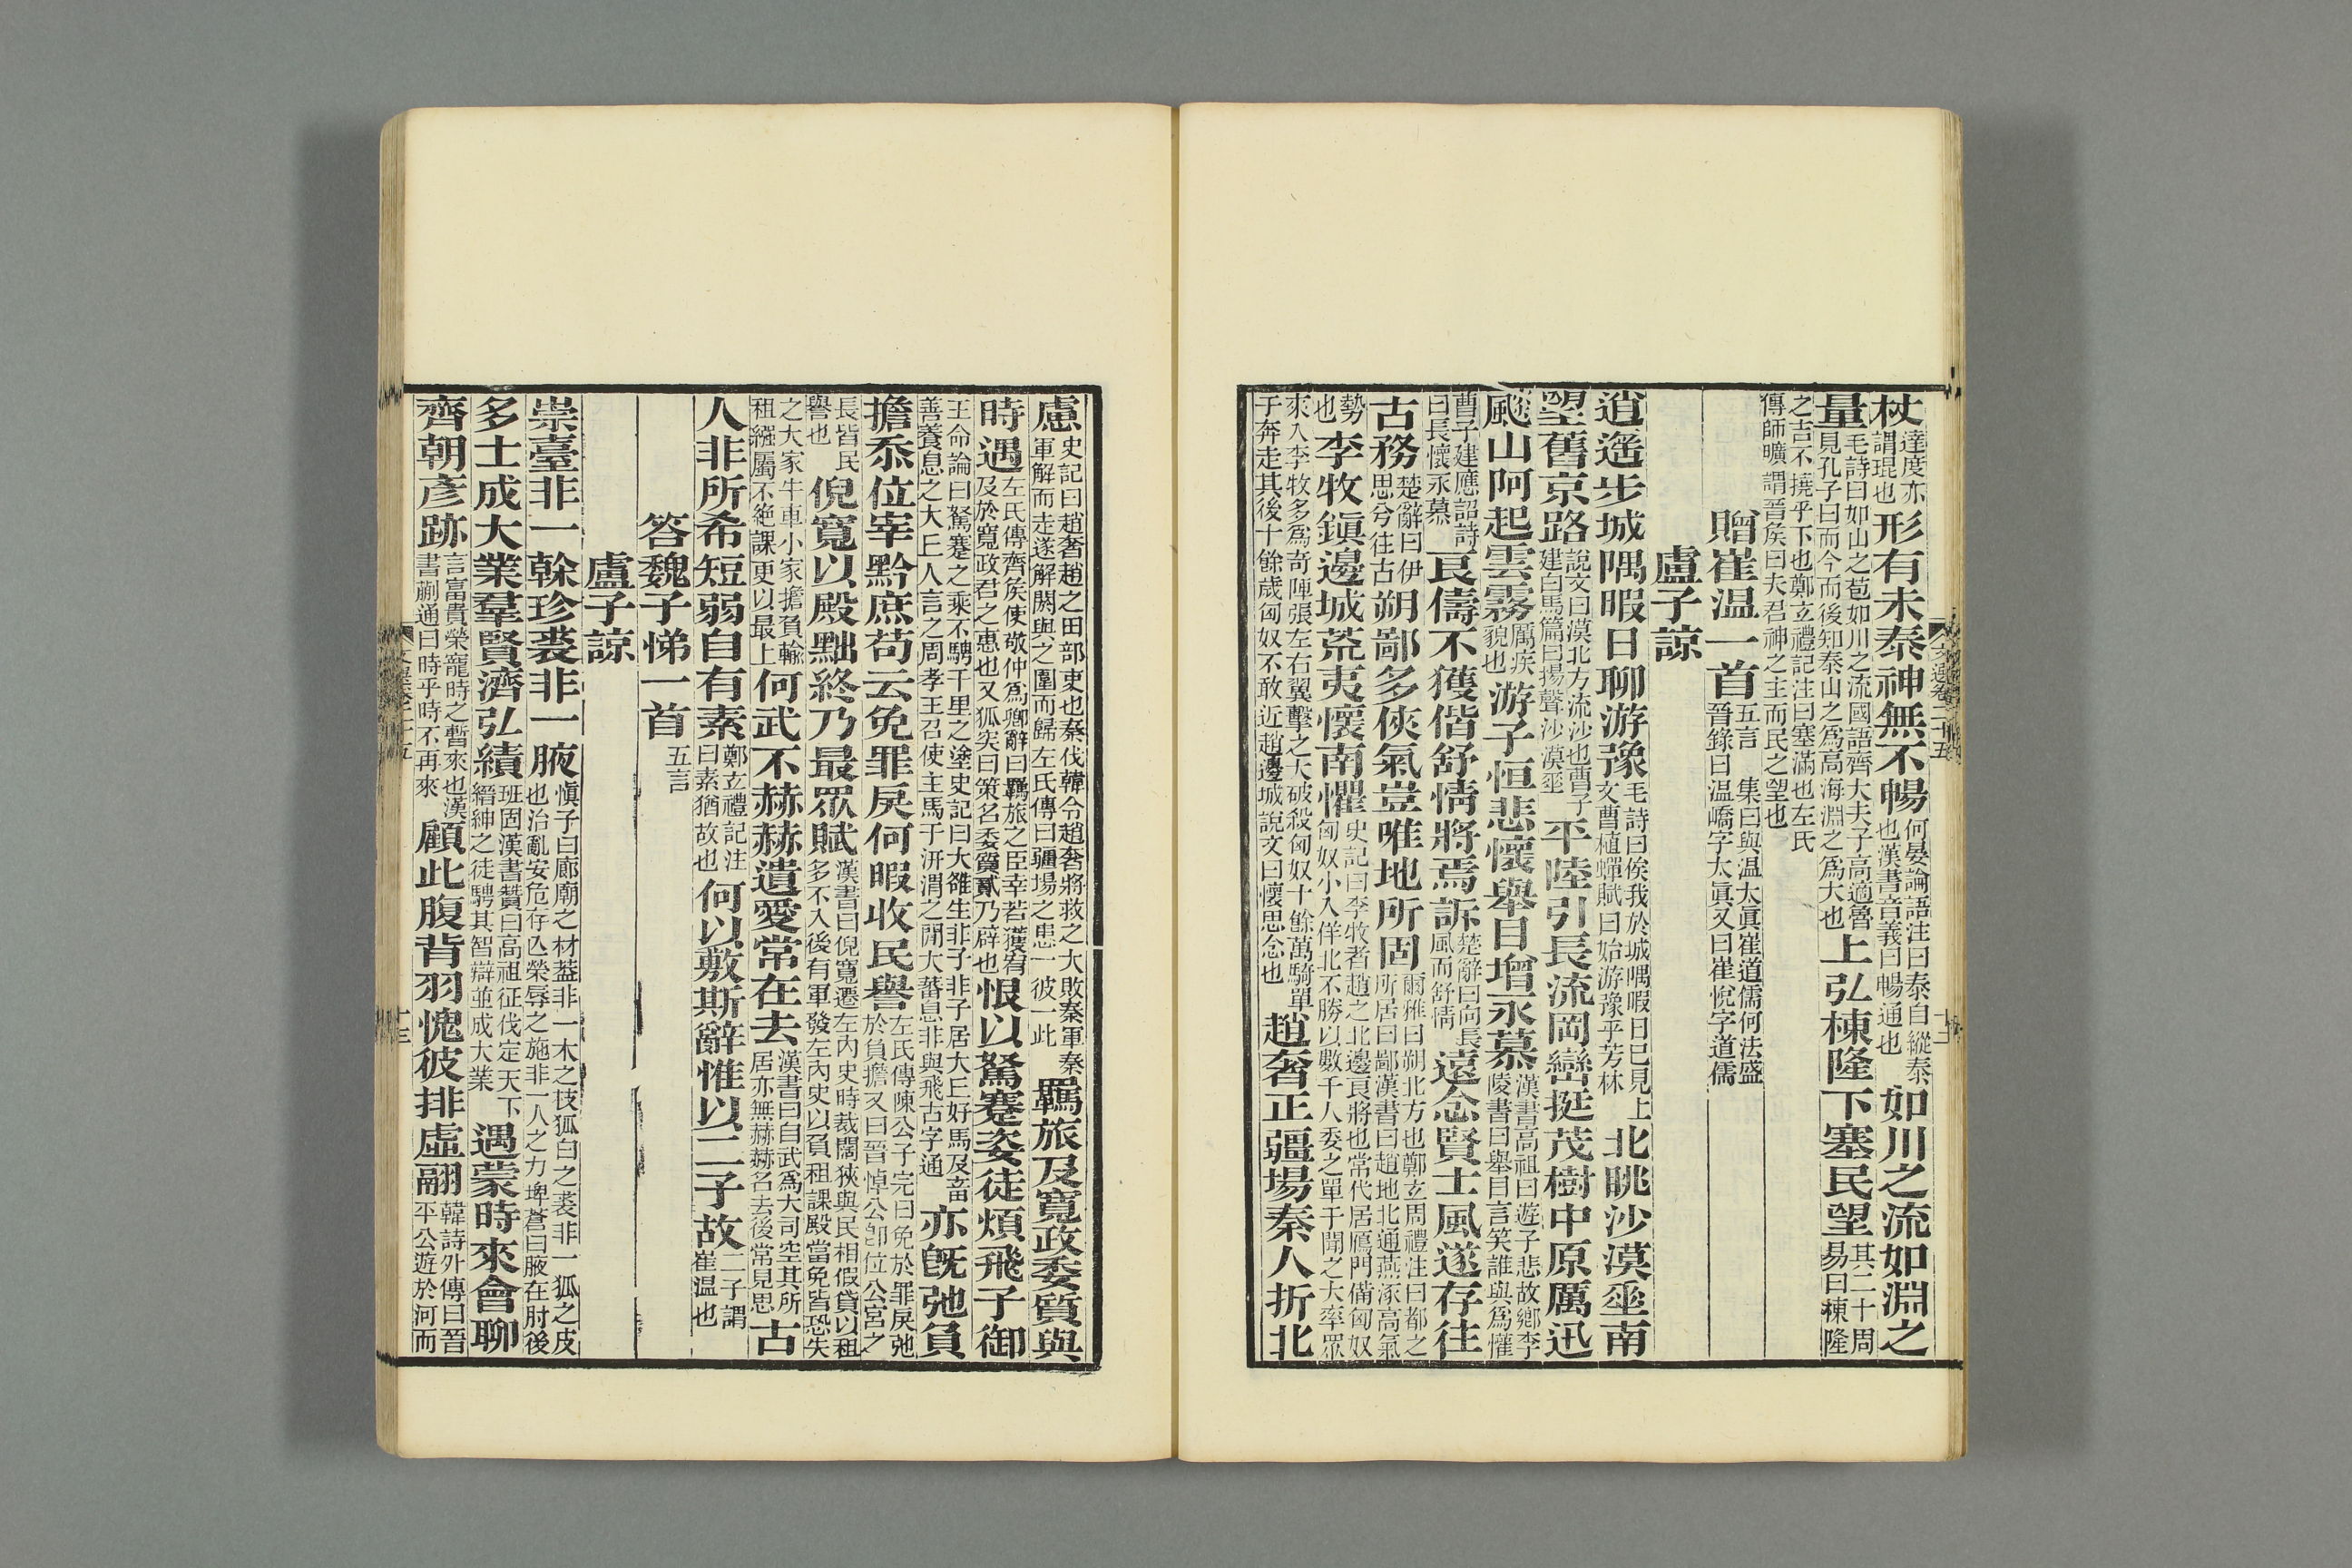 杖達度亦謂琨也形有未泰神無不暢何晏論語注曰泰自縱泰也漢書音義曰暢通也如川之流如淵之
量毛詩曰如山之苞如川之流國語齊大夫子高適魯見孔子曰而今而後知泰山之爲高海淵之爲大也上弘棟隆下塞民望其二十周易曰棟隆
之吉不撓乎下也鄭玄禮記注曰塞滿也左氏傳師曠謂晉矦曰夫君神之主而民之望也
贈崔温一首五言 集曰與温太眞崔道儒何法盛晉錄曰温嶠字太眞又曰崔悅字道儒
盧子諒
逍遙步城隅暇日聊游豫毛詩曰俟我於城隅暇日已見上文曹植蟬賦曰始游豫乎芳林北眺沙漠垂南
望舊京路說文曰漠北方流沙也曹子建白馬篇曰揚聲沙漠垂平陸引長流岡巒挺茂樹中原厲迅
飈山阿起雲霧厲疾貌也游子恒悲懷舉目增永慕漢書高祖曰遊子悲故鄉李陵書曰舉目言笑誰與爲懽
曹子建應詔詩曰長懷永慕良儔不獲偕舒情將焉訴楚辭曰向長風而舒情遠念賢士風遂存往
古務楚辭曰伊思兮往古朔鄙多俠氣豈唯地所固爾雅曰朔北方也鄭玄周禮注曰都之所居曰鄙漢書曰趙地北通燕涿高氣
勢也李牧鎮邊城荒夷懷南懼史記曰李牧者趙之北邊良將也常代居鴈門備匈奴匈奴小入佯北不勝以數千人委之單于聞之大率眾
來入李牧多爲奇陣張左右翼擊之大破殺匈奴十餘萬騎單于奔走其後十餘歲匈奴不敢近趙邊城說文曰懷思念也趙奢正疆場秦人折北
文選卷二十五
十三
慮史記曰趙奢趙之田部吏也秦伐韓令趙奢將救之大敗秦軍秦軍解而走遂解閼與之圍而歸左氏傳曰疆場之患一彼一此羈旅及寬政委質與
時遇左氏傳齊矦使敬仲爲卿辭曰羈旅之臣幸若獲宥及於寬政君之惠也又狐突曰策名委質貳乃辟也恨以駑蹇姿徒煩飛子御
王命論曰駑蹇之乘不騁千里之塗史記曰大雒生非子非子居犬丘好馬及畜善養息之犬丘人言之周孝王召使主馬于汧渭之閒大蕃息非與飛古字通亦旣弛負
擔忝位宰黔庶苟云免罪戾何暇收民譽左氏傳陳公子完曰免於罪戾弛於負擔又曰晉悼公卽位公宮之
長皆民譽也倪寬以殿黜終乃最眾賦漢書曰倪寬遷左內史時裁闊狹與民相假貸以租多不入後有軍發左內史以負租課殿當免皆恐失
之大家牛車小家擔負輸租繦屬不絶課更以最上何武不赫赫遺愛常在去漢書曰何武爲大司空其所居亦無赫赫名去後常見思古
人非所希短弱自有素鄭玄禮記注曰素猶故也何以敷斯辭惟以二子故二子謂崔温也
答魏子悌一首五言
盧子諒
崇臺非一榦珍裘非一腋愼子曰廊廟之材葢非一木之枝狐白之裘非一狐之皮也治亂安危存亾榮辱之施非一人之力埤蒼曰腋在肘後
多士成大業羣賢濟弘績班固漢書贊曰高祖征伐定天下縉紳之徒騁其智辯並成大業遇蒙時來會聊
齊朝彥跡言富貴榮寵時之暫來也漢書蒯通曰時乎時不再來顧此腹背羽愧彼排虛翮韓詩外傳曰晉平公遊於河而
文選卷二十五
十三